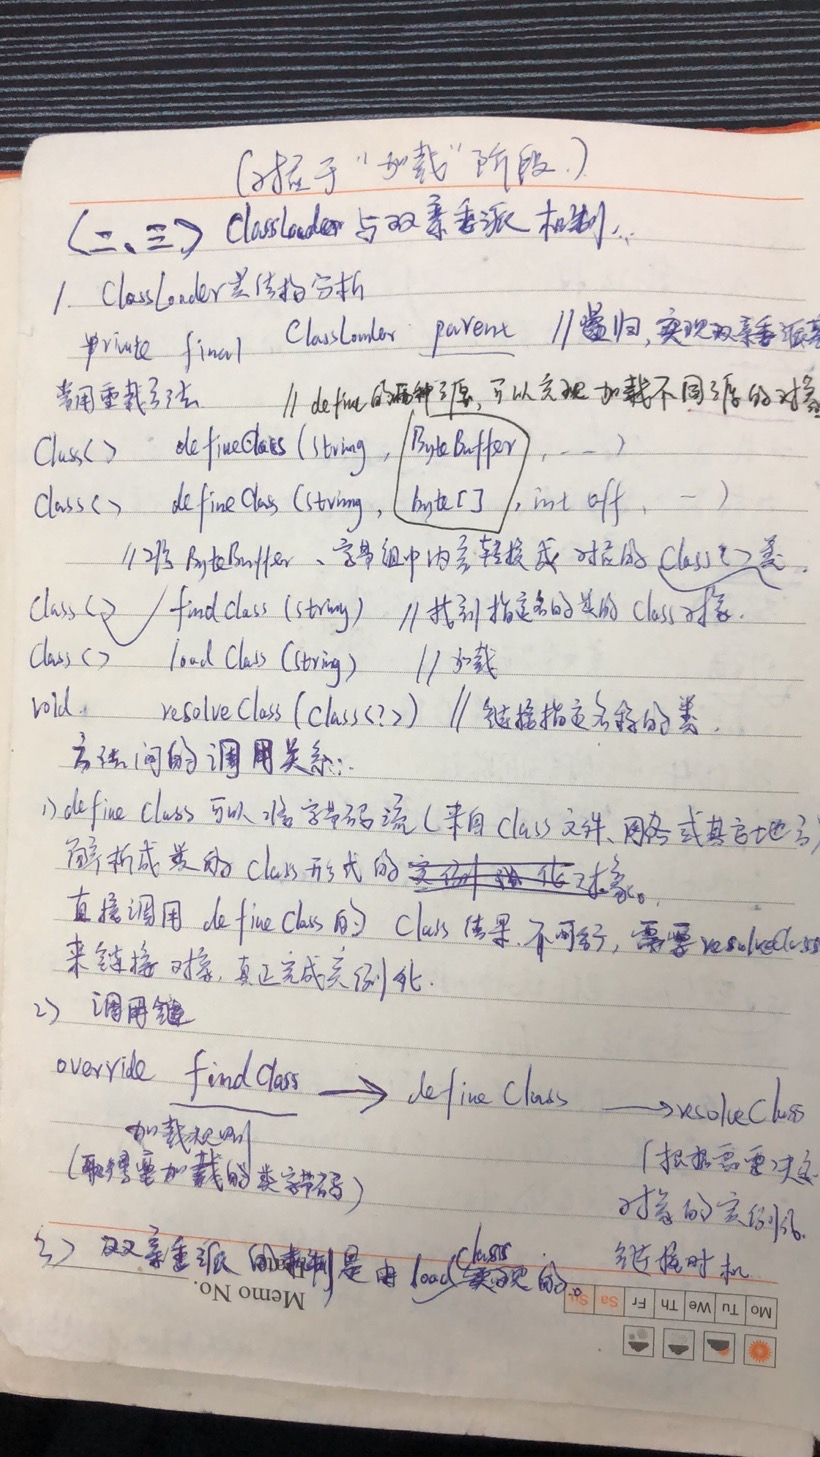 (对应于“加载”阶段.)
(二、三) ClassLoader 与双亲委派机制..
1. ClassLoader类结构分析
private final ClassLoader parent //递归, 实现双亲委派
常用重载方法 //define的两种引原, 可以实现加载不同源的对象
Class<> defineClass(string, ByteBuffer, ---)
Class<> define Class (string, byte[], int off, -)
//将ByteBuffer、字节组中内容转换成 对应的 Class<>类.
Class<> findClass (string) //找到指定名的类的Class对象.
Class<> load Class (string) //加载
void. resolveClass(Class<?>) //链接指定名称的类.
方法间的调用关系:
1) define Class 可以将字节码流(来自Class文件、网络或其它地方)
解析成类的Class形式的对象。
直接调用 defineClass的 Class结果, 不可行, 需要resolveClass
来链接对象, 真正完成实例化.
2) 调用链
override findClass → define Class → resolveClass
加载规则
(取得需加载的类字节码)
(根据需要决定
对象的实例化.
链接时机
3) 双亲委派的机制是由 loadClass实现的。
Memo No.
Mo Tu We Th Fr Sa Su